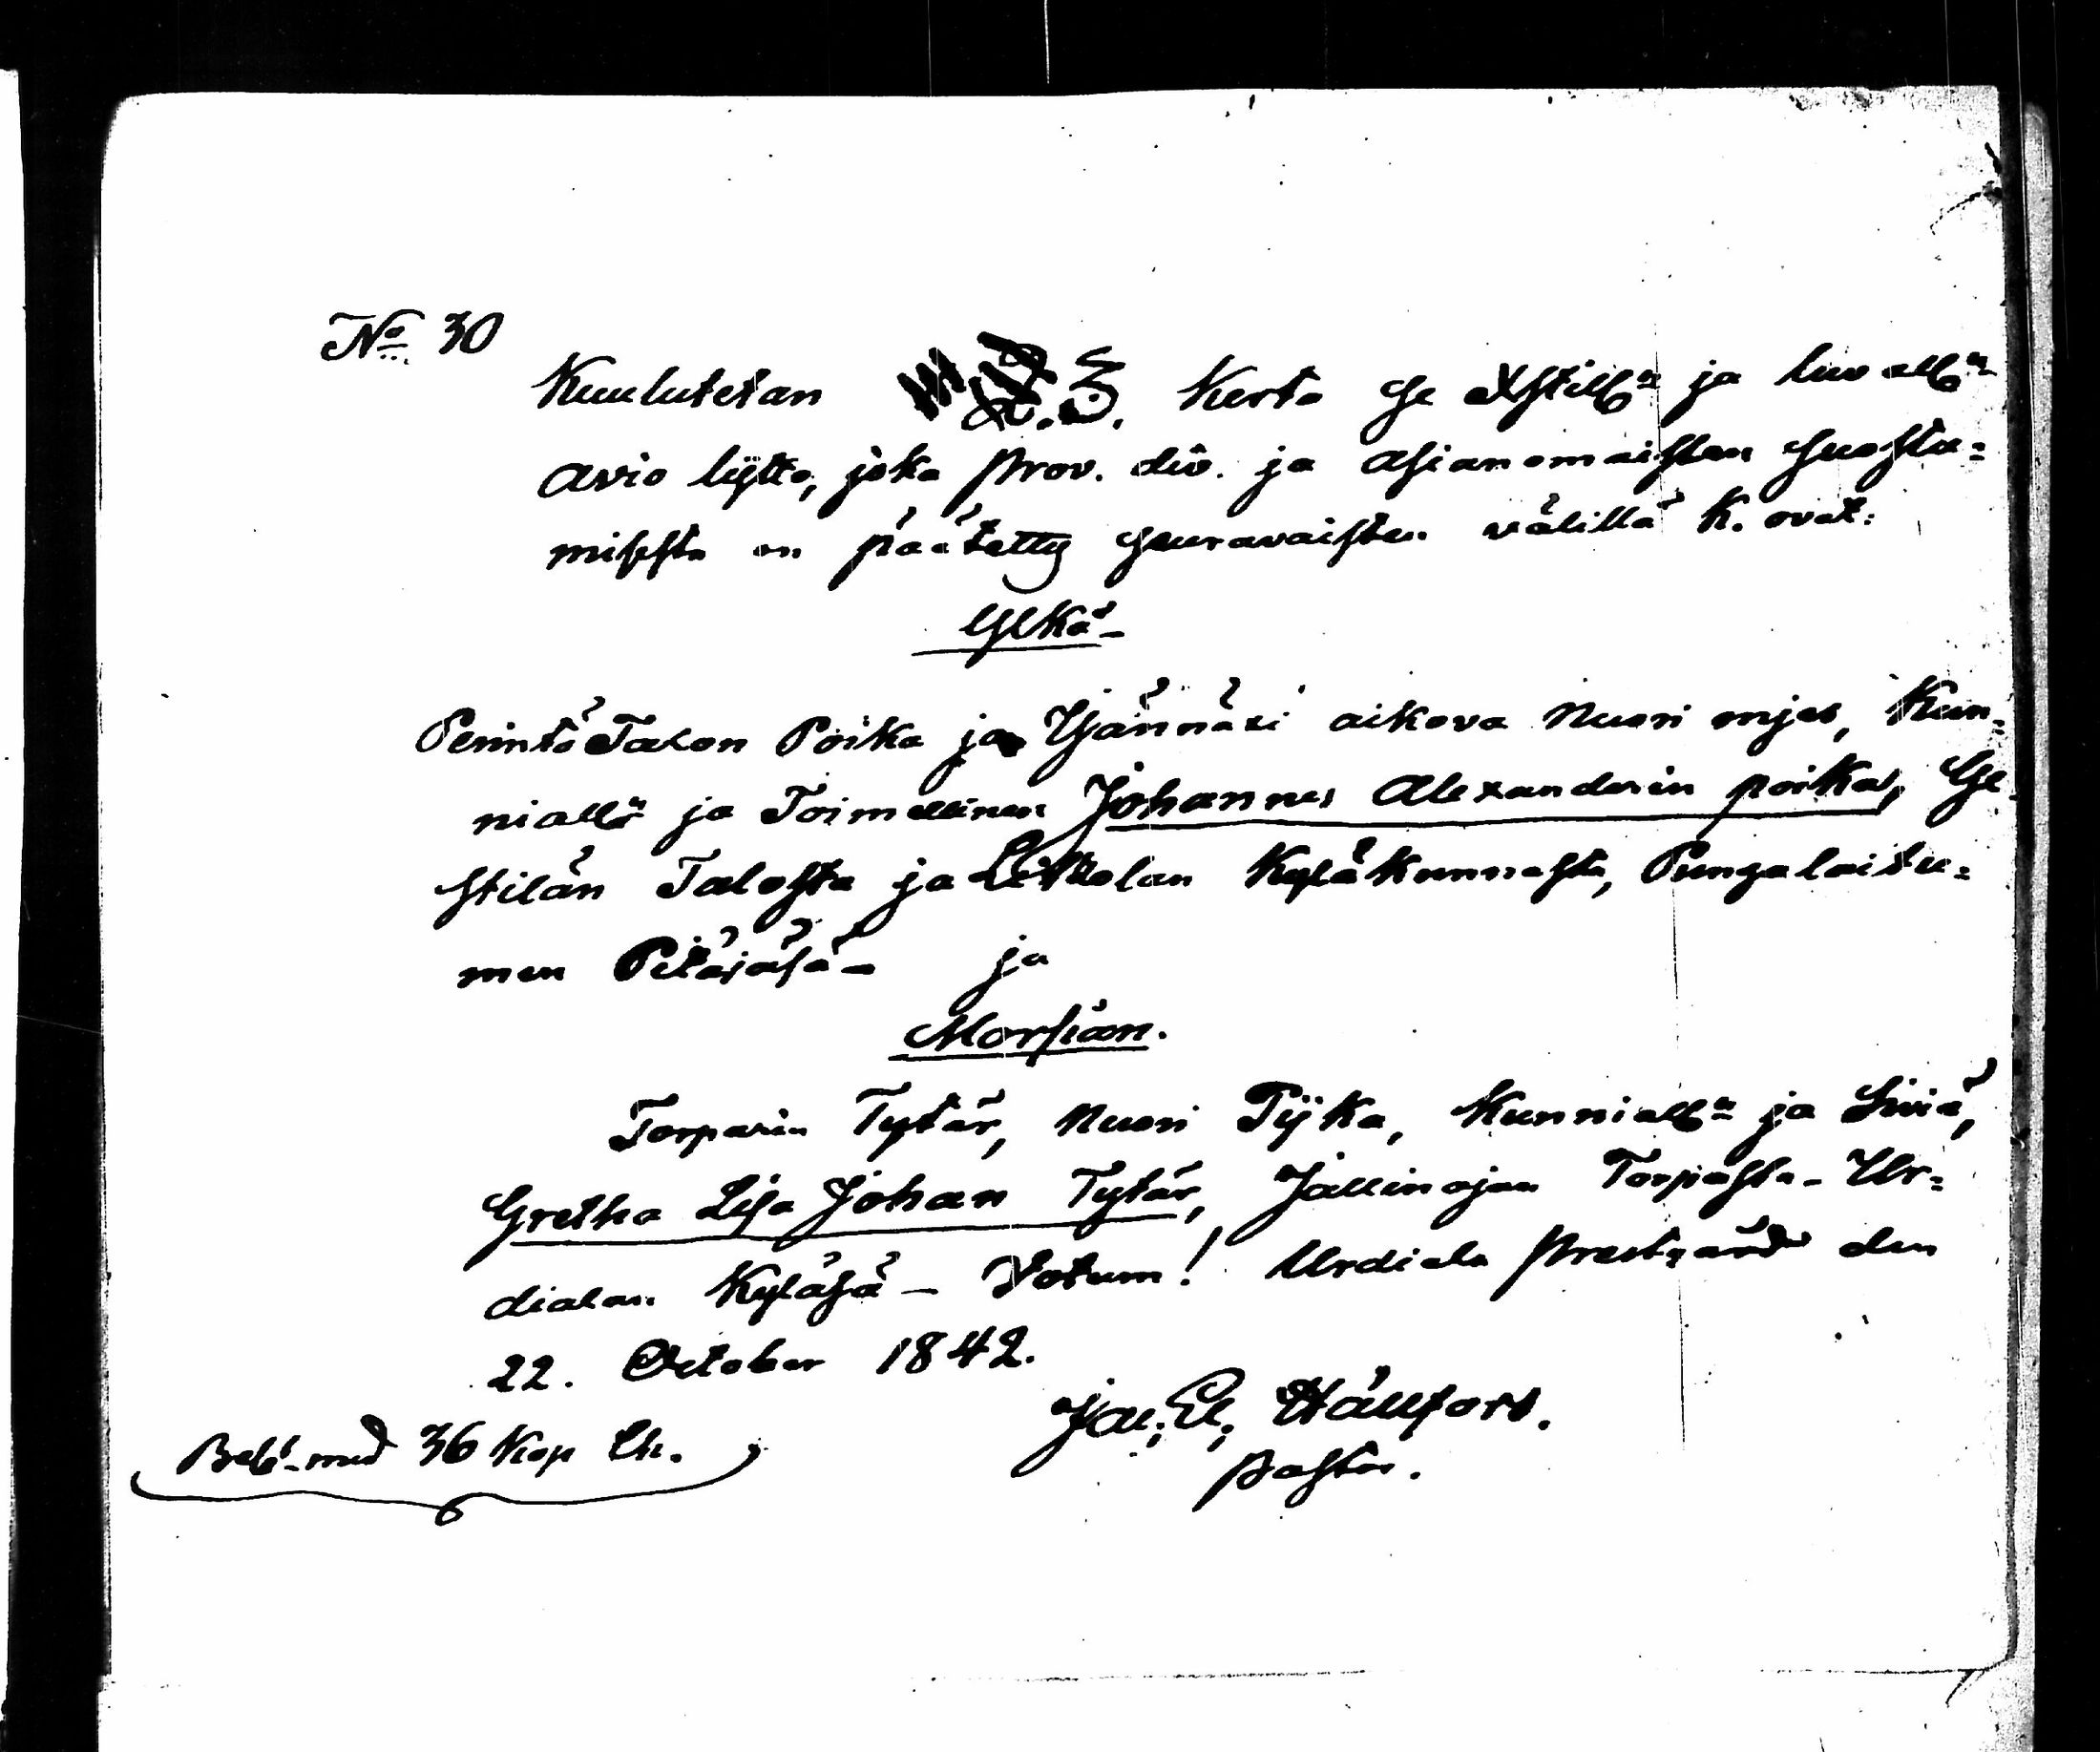 No 30
Kuulutetan 3. Kerta se Xstill:n ja luvall:n
Avio liytto, joka prov. div. ja asianomaisten suostu=
misesta on päätetty seuravaisten välillä k. ovat:
Ylkä-
Perintö Talon Poika ja Ysännäxi aikova Nuori mjes, Kun=
niall:n ja Toimellinen Johannes Alexanderin poika, Se
stilän Talosta ja Kyläkunnasta, Pungalaitu=
men Pitäjäsä- ja
Morsian.
Torparin Tytär, Nuori Pijka, Kunniall:n ja Siviä,
Gretha Lisa Johan Tytär, Jallinojan Torpasta- Ur=
dialan Kyläsä- Votum! Urdiala Prestgård den
22. October 1842.
Jac; El; Hällfors.
pastor.
Bet. med 36 Kop